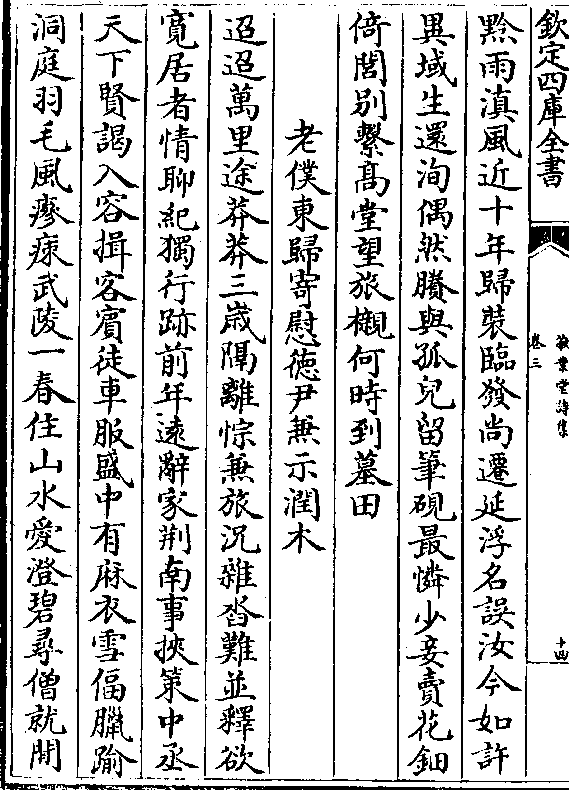 欽定四庫全書
敬業堂詩集
卷三
十四
黔雨滇風近十年歸裝臨發尚遷延浮名誤汝今如許
異域生還洵偶然賸與孤兒留筆硯最憐少妾賣花鈿
倚閭别繫髙堂望旅櫬何時到墓田
老僕東歸寄慰徳尹兼示潤木
迢迢萬里途莽莽三歳隔離悰兼旅况雜沓難並釋欲
寛居者情聊紀獨行跡前年逺辭家荆南事挾策中丞
天下賢謁入容揖客賓徒車服盛中有麻衣雪偪臘踰
洞庭羽毛風㾾㾕武陵一春住山水愛澄碧尋僧就閒